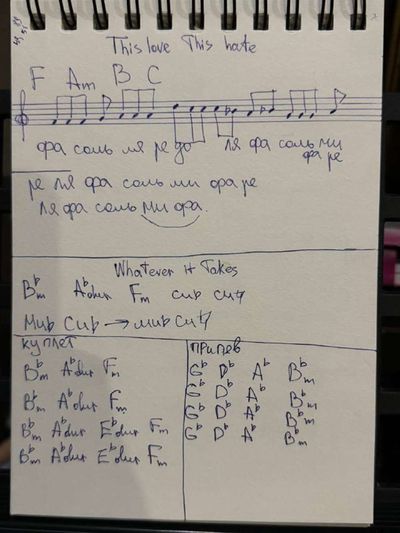 This love This hate
F Am B C
фа соль ля ре до ля фа соль ми
фа ре
ре ля фа соль ми фа ре
ля фа соль ми фа.
Whatever it Takes
B♭m A♭dur Fm си♭ си♮
Ми♭ Си♭ → ми♭ си♮
куплет
B♭m A♭dur Fm
B♭m A♭dur Fm
B♭m A♭dur E♭dur Fm
B♭m A♭dur E♭dur Fm
припев
G♭ D♭ A♭ B♭m
G♭ D♭ A♭ B♭m
G♭ D♭ A♭ B♭m
G♭ D♭ A♭ B♭m